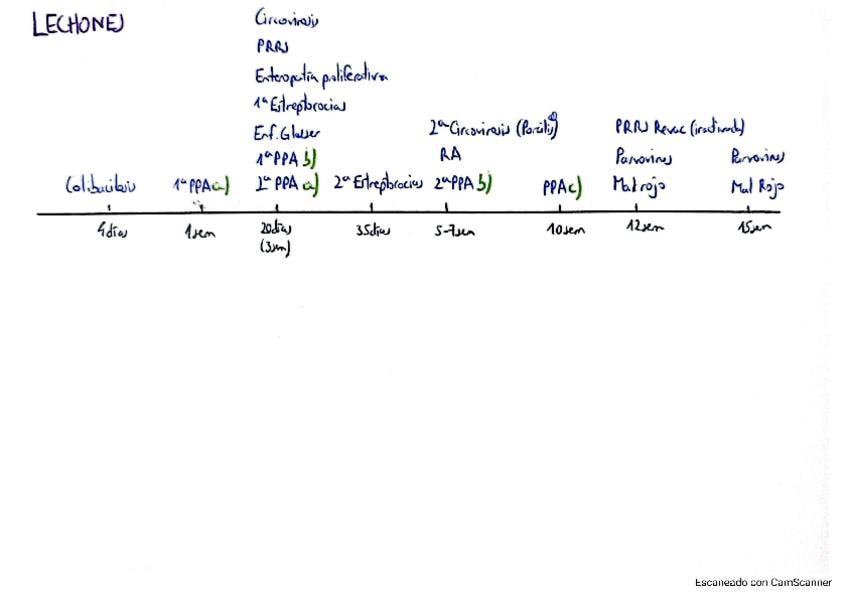 LECHONES
Circovirosis
PRRS
Enteropatía proliferativa
1ª Estreptococias
Enf. Glasser
1ª PPA b)
2ª PPA a)
Colibacilosis
1ª PPA a)
2ª Estreptococias
2ª Circovirosis (Porcilis)
RA
2ª PPA b)
PPA c)
PRRS Revac (inactivada)
Parvovirus
Mal rojo
Parvovirus
Mal Rojo
4 días
1 sem
20 días
(3 sem)
35 días
5-7 sem
10 sem
12 sem
15 sem
Escaneado con CamScanner